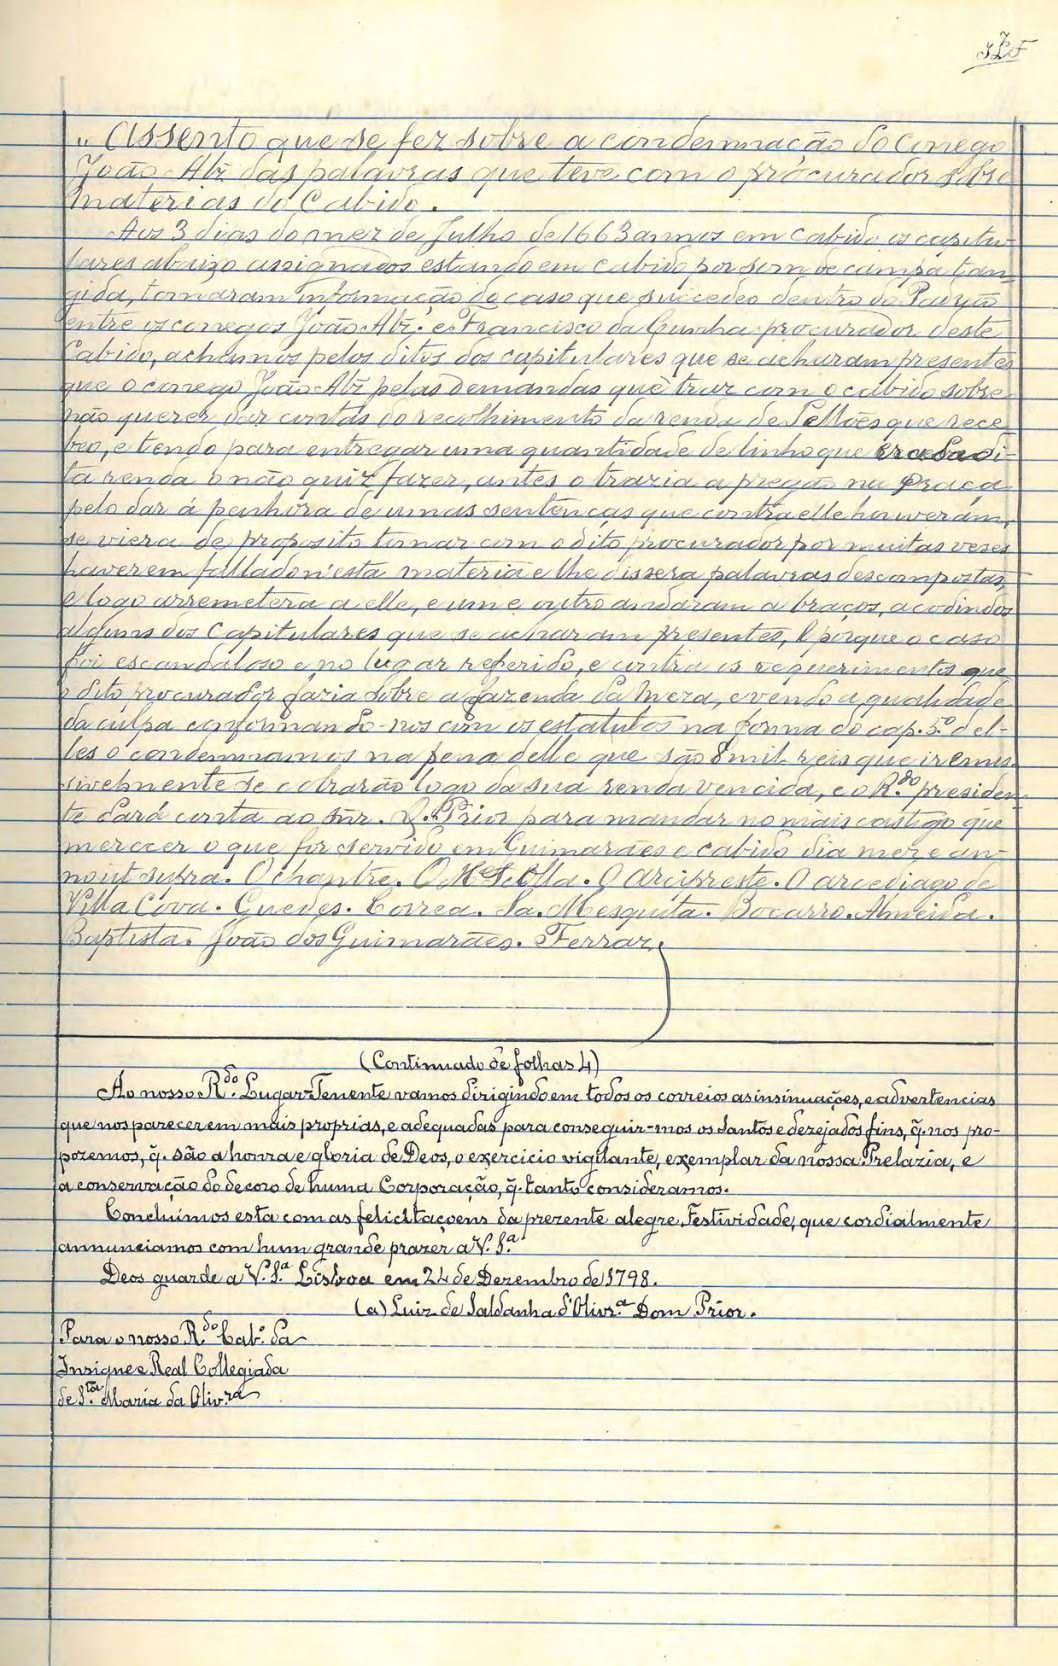 " Assento que se fez sobre a condemnação do Conego
João Alz̃ das palavras que teve com o procurador sobre
materias do Cabido.
Aos 3 dias do mez de Julho de 1663 annos em Cabido os capitu-
lares abaixo assignados estando em cabido por som de campa tan-
gida, tomaram informação do caso que succedeo dentro do
entre os conegos João Alz̃. e Francisco da Cunha procurador deste
Cabido, achamos pelos ditos dos capitulares que se acharam presentes
que o conego João Alz̃ pelas demandas que traz com o cabido sobre
não querer dar contas do recolhimento da renda de que rece-
beo, e tendo para entregar uma quantidade de linho que era da di-
ta renda o não quiz fazer, antes o trazia a pregão na Praça
pelo dar á penhora de umas sentenças que contra elle houveram,
se viera de proposito tomar com o dito procurador por muitas vezes
haverem fallado n'esta materia e lhe dissera palavras descompostas,
e logo arremetera a elle, e um e outro andaram a braços, acodindo
alguns dos Capitulares que se acharam presentes, E porque o caso
foi escandaloso e no lugar referido, e contra os requerimentos que
o dito procurador fazia sobre a fazenda da Meza, e vendo a qualidade
da culpa conformando-nos com os estatutos na forma do cap. 5º del-
les o condemnamos na pena delle que são 8 mil reis que iremis-
sivelmente se cobrarão logo da sua renda vencida, e o R.do presiden-
te dará conta ao Snr. D. Prior para mandar no mais castigo que
merecer o que for servido em Guimarães e Cabido dia mez e an-
no ut supra. O chantre. O O Arcipreste. O arcediago de
Villa Cova. Guedes. Correa. Sa. Mesquita. Bocarro. Almeida.
Baptista. João dos Guimarães. Ferraz.
(Continuado de folhas 4)
Ao nosso R.do Lugar-Tenente vamos dirigindo em todos os correios as insinuações, e advertencias
que nos parecerem mais proprias, e adequadas para conseguir-mos os Santos e dezejados fins, q̃. nos pro-
pozemos, q̃. são a honra e gloria de Deos, o exercicio vigilante, exemplar da nossa Prelazia, e
a conservação do decoro de huma Corporação, q̃. tanto consideramos.
Concluimos esta com as felicitaçoens da prezente alegre Festividade, que cordialmente
annunciamos com hum grande prazer a V. S.ª
Deos guarde a V. S.ª Lisboa em 24 de Dezembro de 1798.
(a) Luiz de Saldanha d'Olivr.ª Dom Prior.
Para o nosso R.do Cab.º da
Insigne e Real Collegiada
de S.ta Maria da Oliv.ra